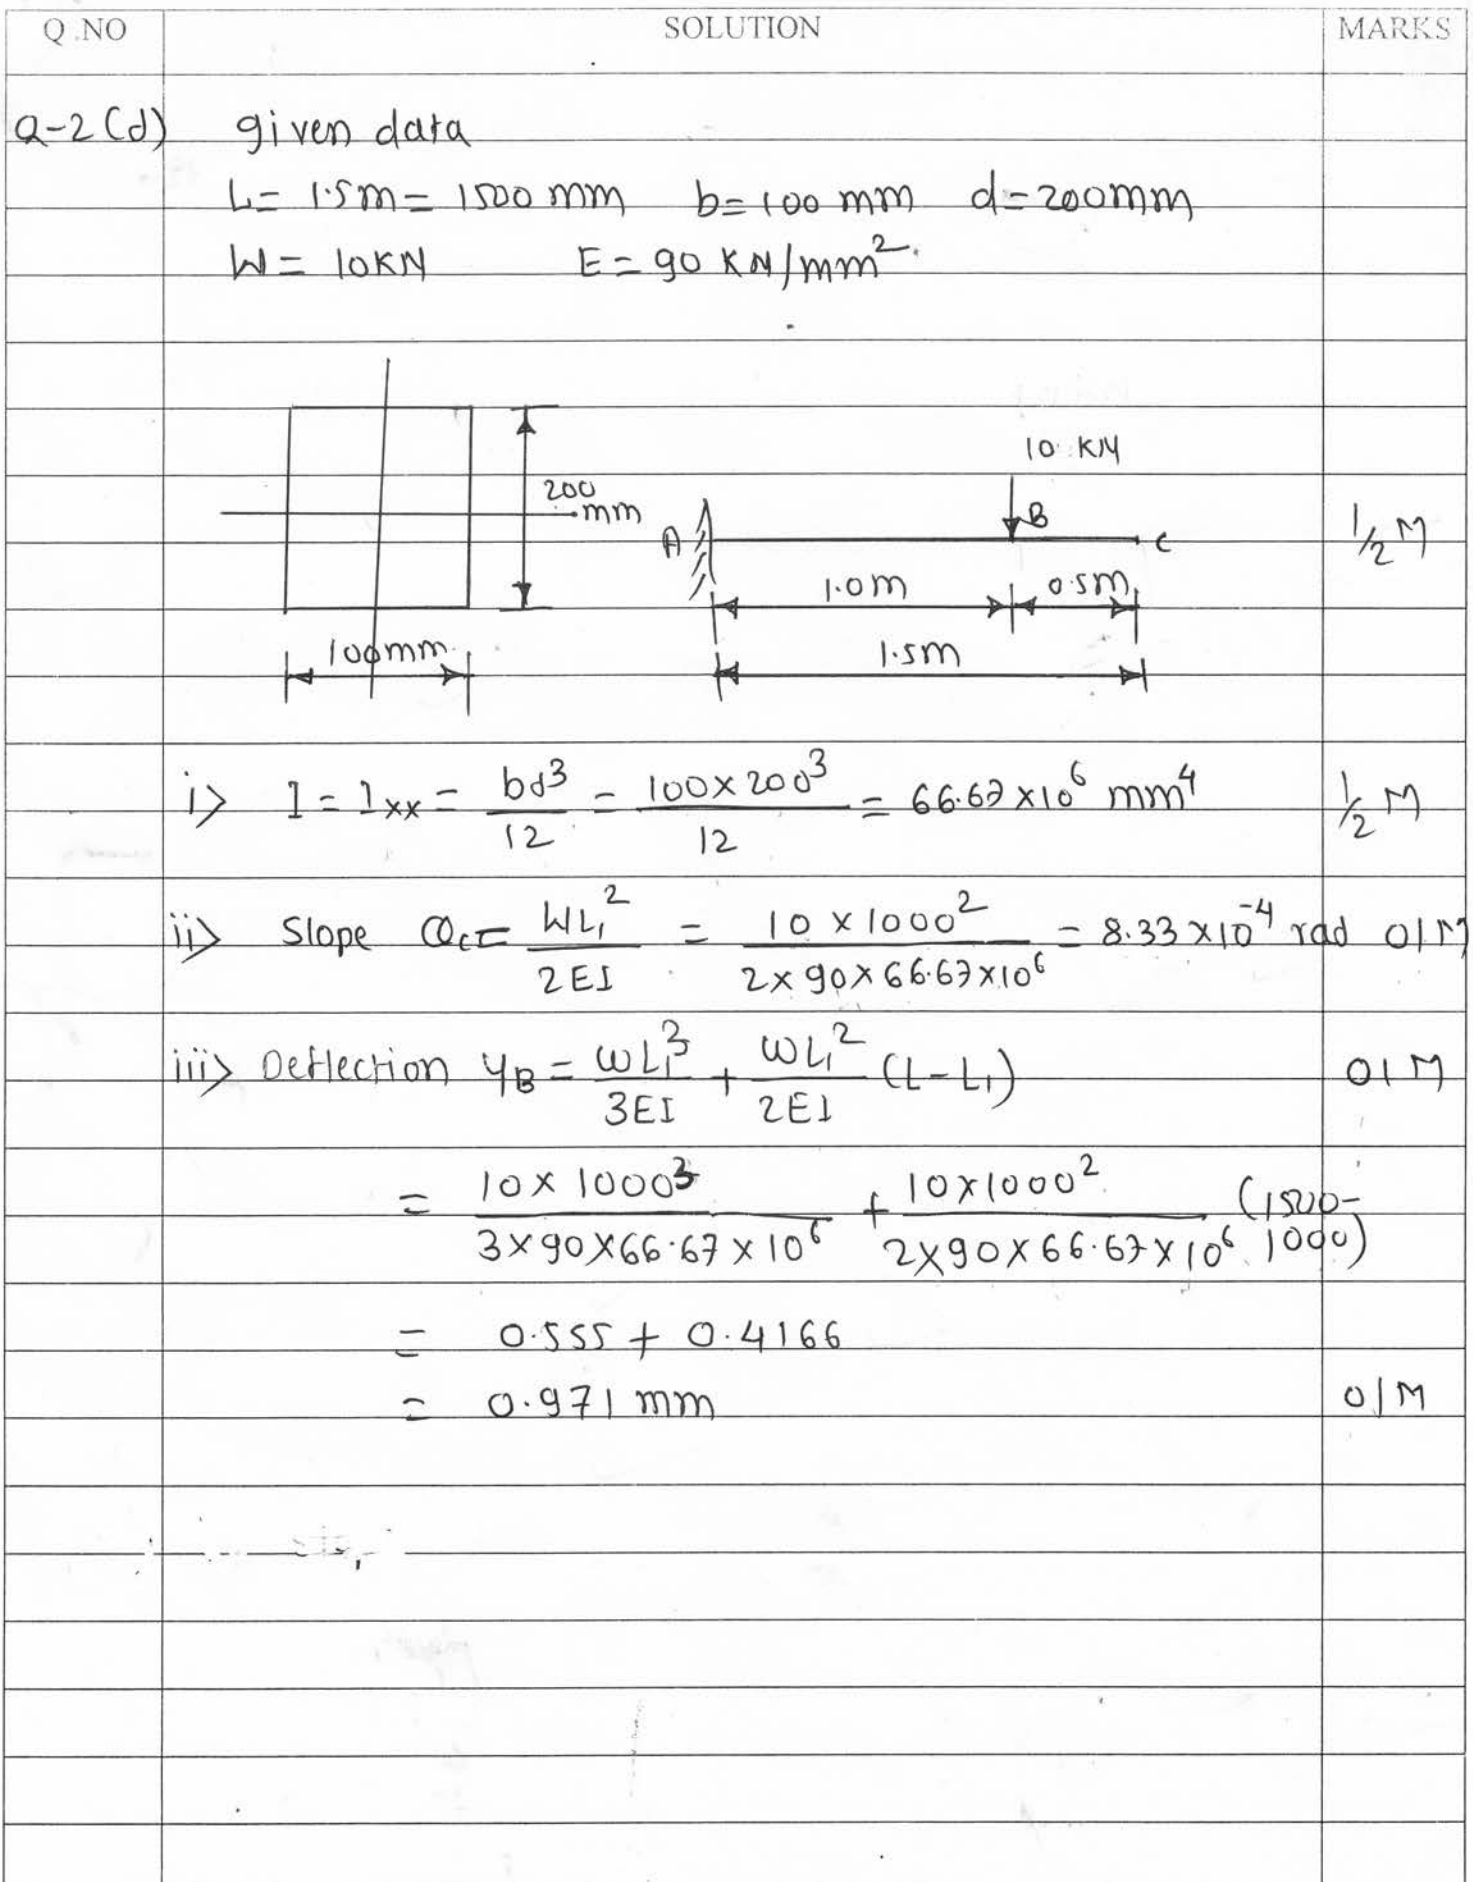 Q.NO SOLUTION MARKS
Q-2(d) given data
L = 1.5m = 1500 mm b = 100 mm d = 200mm
W = 10KN E = 90 KN/mm².
10 KN
200
mm
A B C ½ M
1.0m 0.5m
100mm 1.5m
i> I = Ixx = bd³/12 = 100×200³/12 = 66.67×10⁶ mm⁴ ½ M
ii> Slope θc = WL₁²/2EI = 10 × 1000²/2×90×66.67×10⁶ = 8.33×10⁻⁴ rad 01M
iii> Deflection yB = WL₁³/3EI + WL₁²/2EI (L-L₁) 01M
= 10×1000³/3×90×66.67×10⁶ + 10×1000²/2×90×66.67×10⁶ (1500-
1000)
= 0.555 + 0.4166
= 0.971 mm 01M